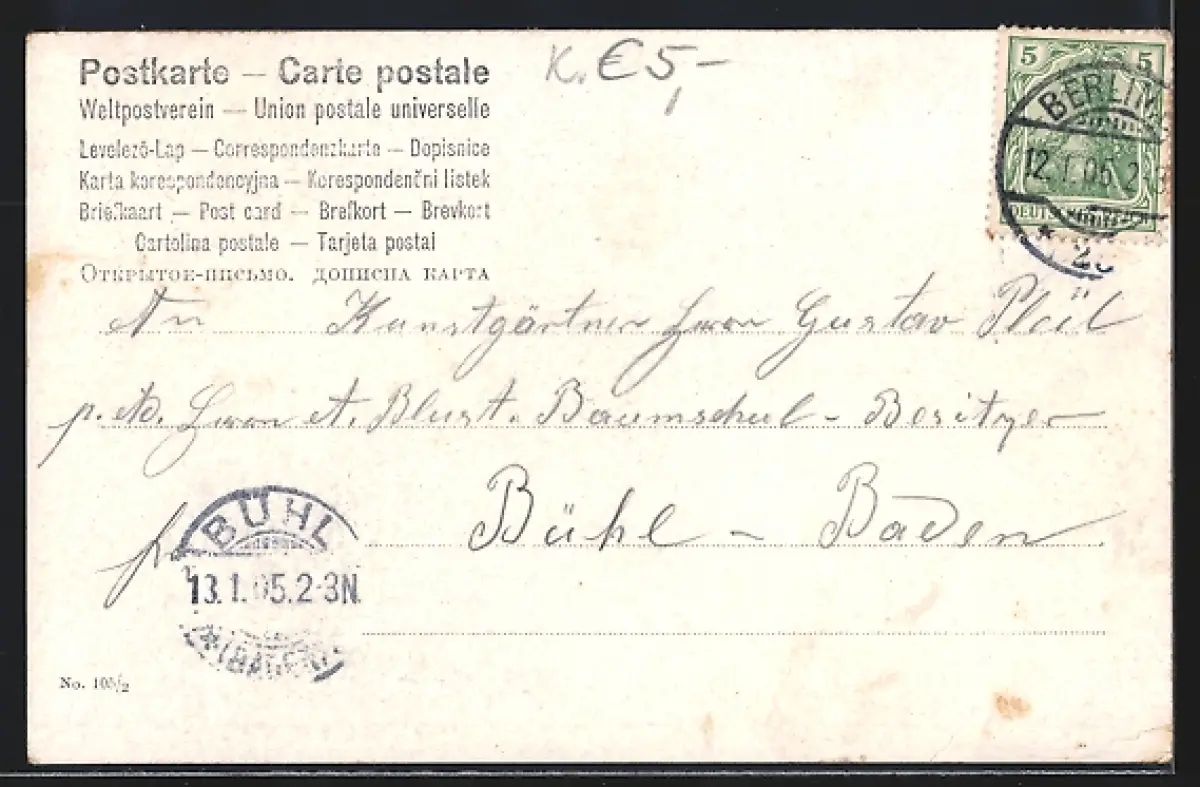 Postkarte — Carte postale
Weltpostverein — Union postale universelle
Levelező-Lap — Correspondenzkarte — Dopisnice
Karta korespondencyjna — Korespondenční listek
Briefkaart — Post card — Brefkort — Brevkort
Cartolina postale — Tarjeta postal
Открытое-письмо. дописна карта
K. €5,-
5 5
BERLIN
12.1.05.2
DEUTSCHES REICH
*
An Kunstgärtner Herrn Gustav
p. Ad. Herrn A. Blust. Baumschul - Besitzer
Bühl - Baden
BÜHL
13.1.05.2-3N.
*(BADEN)
No. 105/2